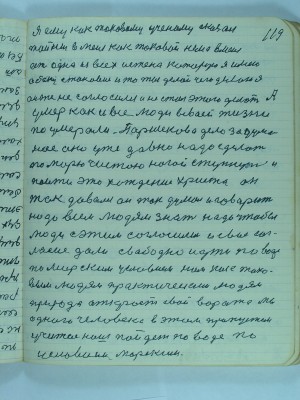 119
Я ему как таковому ученому сказал
тайны в меня как таковой нет в меня
это одна из всех истена которую я имею
обоих спокоен и то ты делай что делается
он же не согласился и не стал этого делать А
умер как и все люди в своей жизни
по умерали. Паршекова дело задума
ное оно уже давно надо сделать
по морю чистою ногой ступнуть и
пойти это хождение Христа он
так давал он так думал и говорить
надо всем людям знать надо чтобы
люди с этим согласились и свое сог-
ласие дали свободно идти по воде
по мирским условиям ним как тако-
вым людям практическим людям
природа откроет свои ворота ни
одного человека в этом пропустит
учителя наш пойдет по воде по
условиям морским.